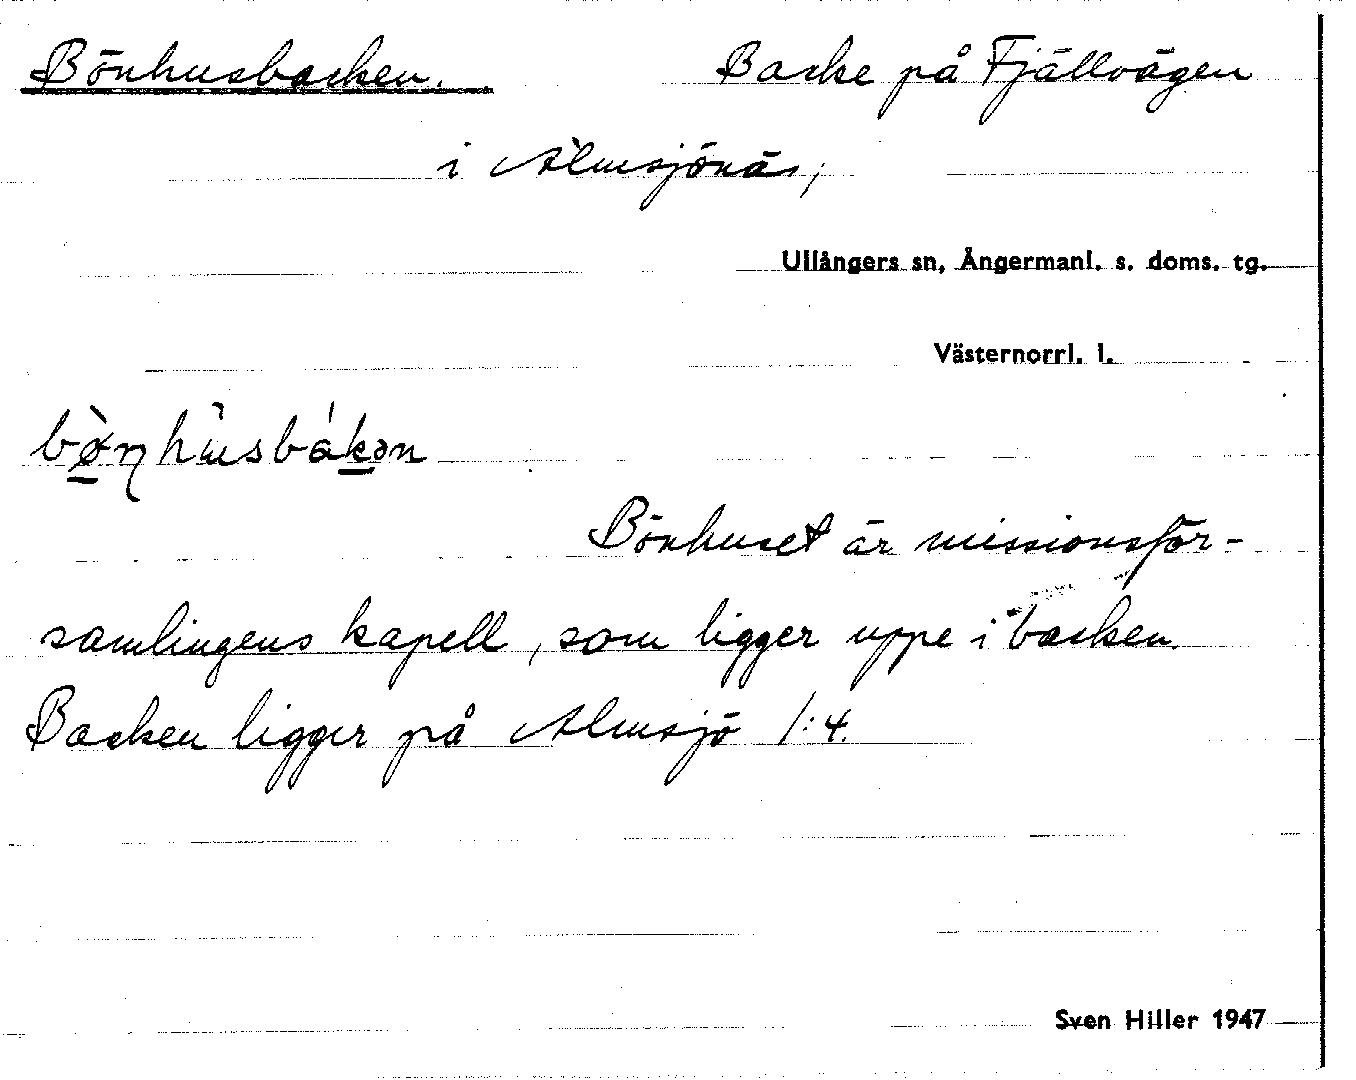 Bönhusbacken. Backe på Fjällvägen
i Älmsjönäs,
Ullångers sn, Ångermanl. s. doms. tg.
Västernorrl. l.
Bönhuset är missionsför-
samlingens kapell, som ligger uppe i backen.
Backen ligger på Älmsjö 1:4.
Sven Hiller 1947